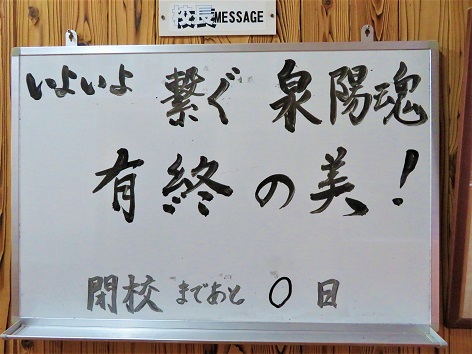 校長MESSAGE
いよいよ 繋ぐ 泉陽魂
有終の美!
閉校まであと 0 日